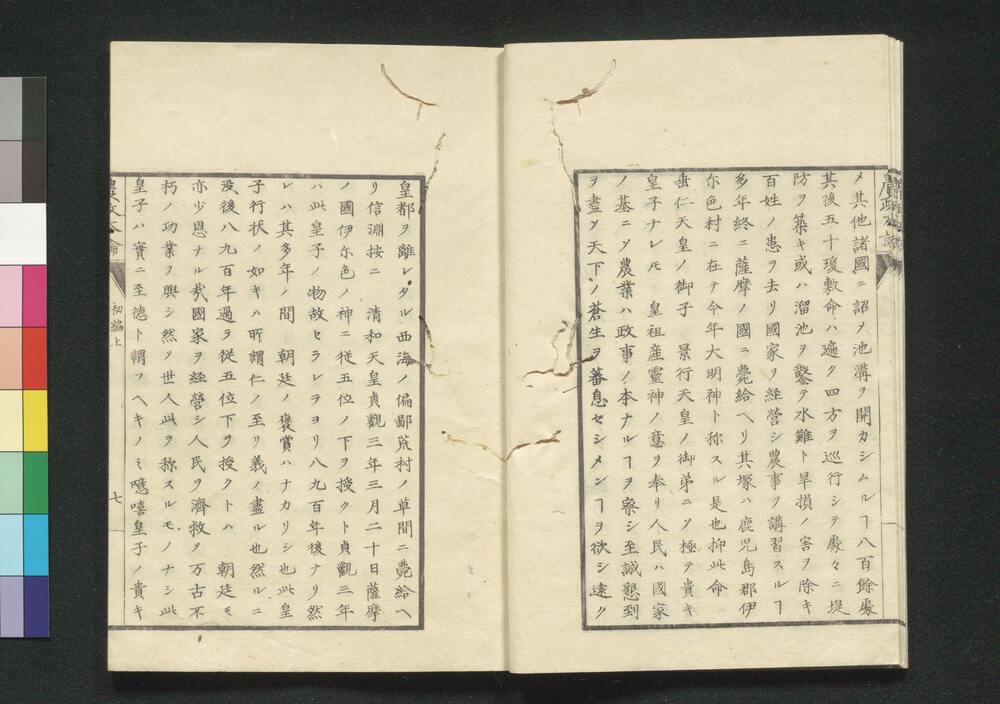 メ其他諸國ニ詔メ池溝ヲ開カシムルヿ八百餘處
其後五十瓊敷命ハ遍ク四方ヲ巡行シテ處々ニ堤
防ヲ築キ或ハ溜池ヲ鑿テ水難ト旱損ノ害ヲ除キ
百姓ノ患ヲ去リ國家ヲ経營シ農事ヲ講習スルヿ
多年終ニ薩摩ノ國ニ薨給ヘリ其塚ハ鹿児島郡伊
尓色村ニ在テ今年大明神ト称スル是也抑此命
垂仁天皇ノ御子 景行天皇ノ御弟ニメ極テ貴キ
皇子ナレ𪜈 皇祖産霊神ノ意ヲ奉リ人民ハ國家
ノ基ニメ農業ハ政事ノ本ナルヿヲ察シ至誠懇到
ヲ盡メ天下ノ蒼生ヲ蕃息セシメンヿヲ欲シ遠ク
皇都ヲ離レタル西海ノ偏鄙荒村ノ草間ニ薨給ヘ
リ信淵按ニ 清和天皇貞觀三年三月二十日薩摩
ノ國伊尓色ノ神ニ従五位ノ下ヲ授クト貞觀三年
ハ此皇子ノ物故セラレテヨリ八九百年後ナリ然
レハ其多年ノ間 朝廷ノ褒賞ハナカリシ也此皇
子行状ノ如キハ所謂仁ノ至リ義ノ盡ル也然ルニ
没後八九百年過テ従五位下ヲ授クトハ 朝廷モ
亦少恩ナル哉國家ヲ経營シ人民ヲ濟救メ万古不
朽ノ功業ヲ興シ然メ世人此ヲ称スルモノナシ此
皇子ハ實ニ至徳ト謂フヘキノミ噫嘻皇子ノ貴キ
初編上
七